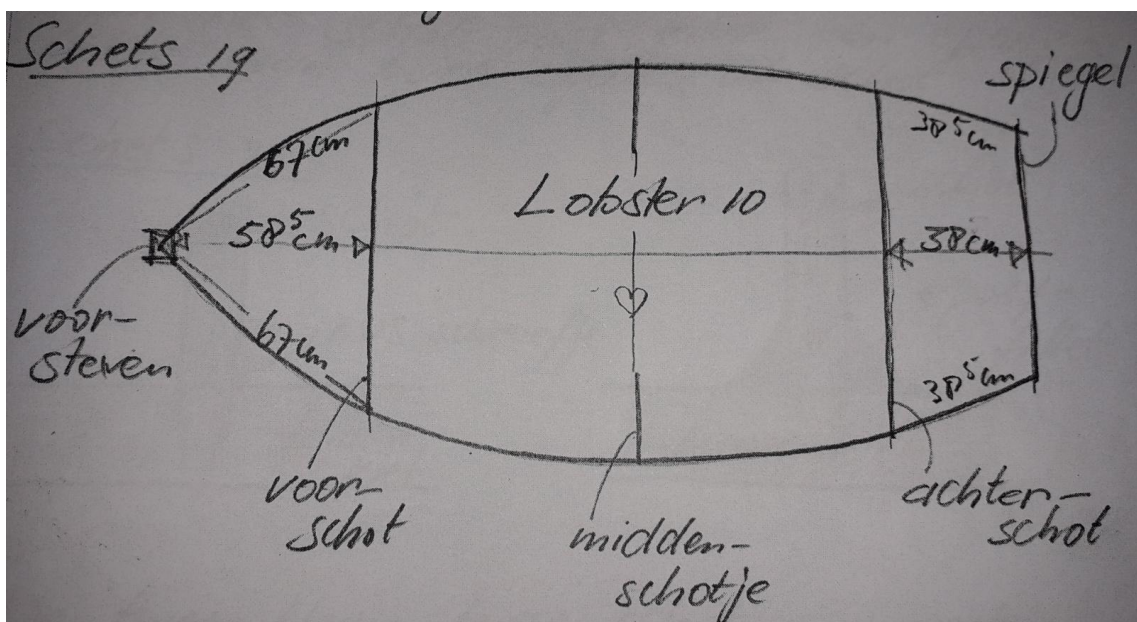 Schets 19
spiegel
67 cm
38⁵ cm
Lobster 10
58⁵ cm
38 cm
voor-
steven
67 cm
38⁵ cm
voor-
schot
midden-
schotje
achter-
schot